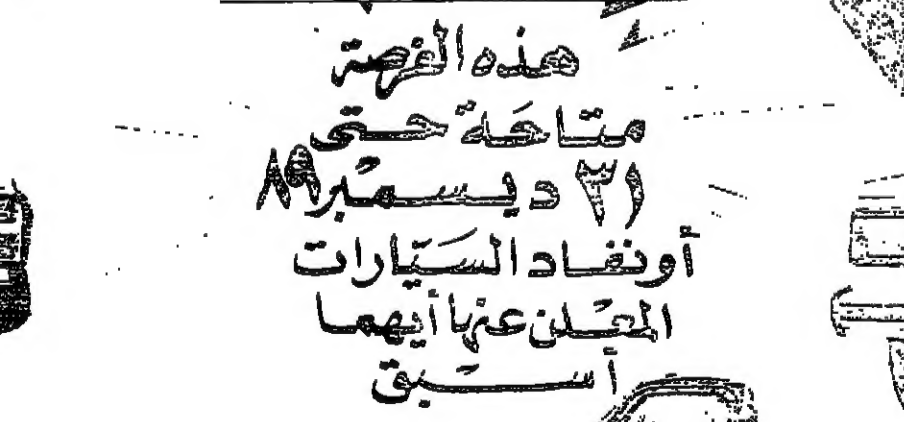 هذه الفرصة
متاحَة حتى
٣١ ديسمبر ٨٩
أو نفاد السَيّارات
المعلن عنها أيهما
أسبق